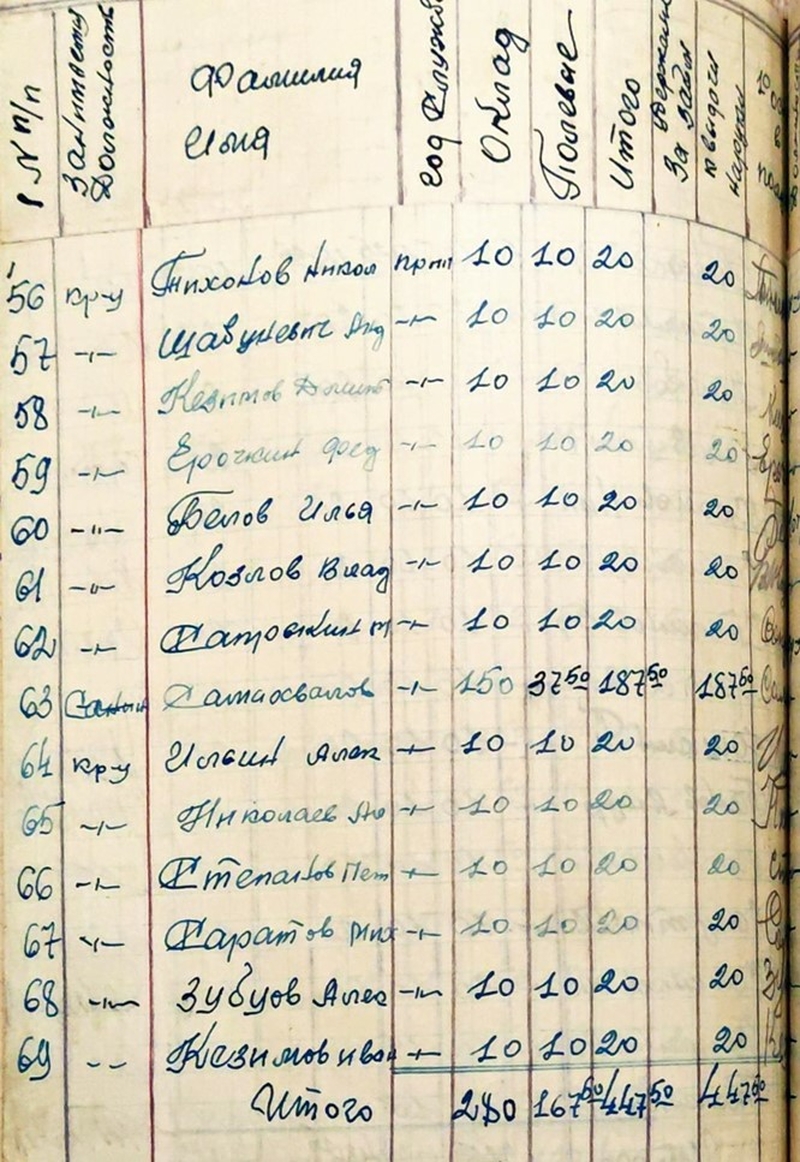 № п/п Занимаемая Должность Фамилия Имя год Службы Оклад Полевые Итого За заём к выдачи наруки
56 кр-ц Тихонов Никол 10 10 20 20
57 -"- -"- 10 10 20 20
58 -"- Кезимов -"- 10 10 20 20
59 -"- Ерочкин Фед -"- 10 10 20 20
60 -"- Белов Илья -"- 10 10 20 20
61 -"- Козлов Влад -"- 10 10 20 20
62 -"- -"- 10 10 20 20
63 Самохвалов -"- 150 37 50 187 50 187 50
64 кр-ц Ильин Алек -"- 10 10 20 20
65 -"- Николаев -"- 10 10 20 20
66 -"- Степанов Пет -"- 10 10 20 20
67 -"- Саратов Мих -"- 10 10 20 20
68 -"- Зубцов Алек -"- 10 10 20 20
69 -"- Кезимов Иван -"- 10 10 20 20
Итого 280 167 50 447 50 447 50